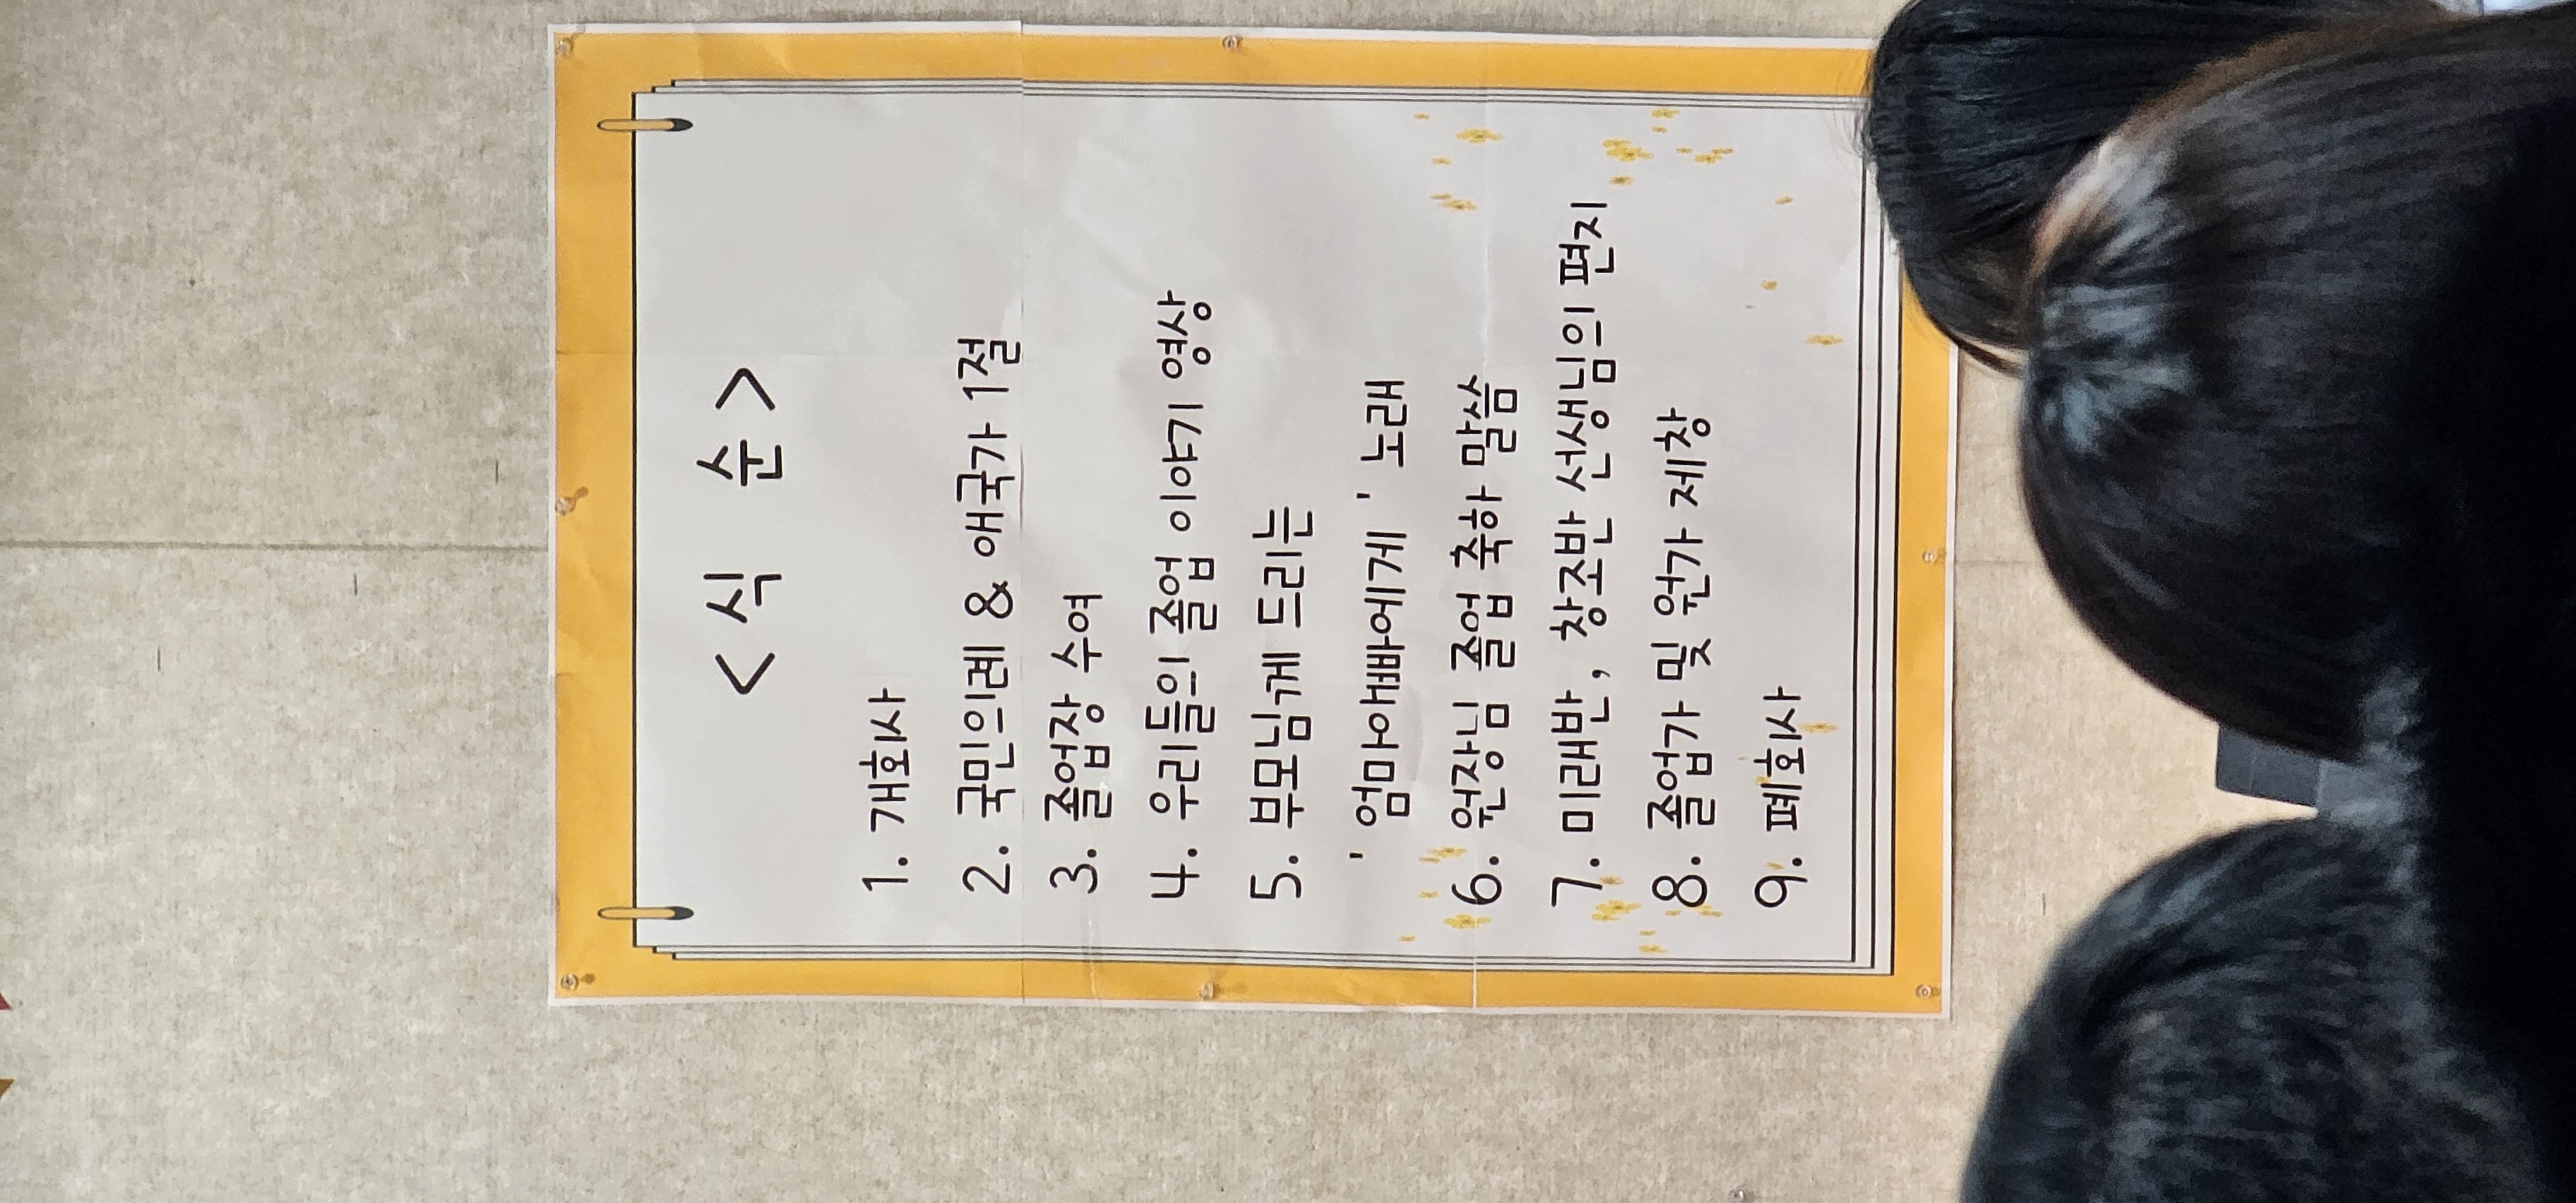 <식 순>
1. 개회사
2. 국민의례 & 애국가 1절
3. 졸업장 수여
4. 우리들의 졸업 이야기 영상
5. 부모님께 드리는
'엄마아빠에게' 노래
6. 원장님 졸업 축하 말씀
7. 미래반, 창조반 선생님의 편지
8. 졸업가 및 원가 제창
9. 폐회사